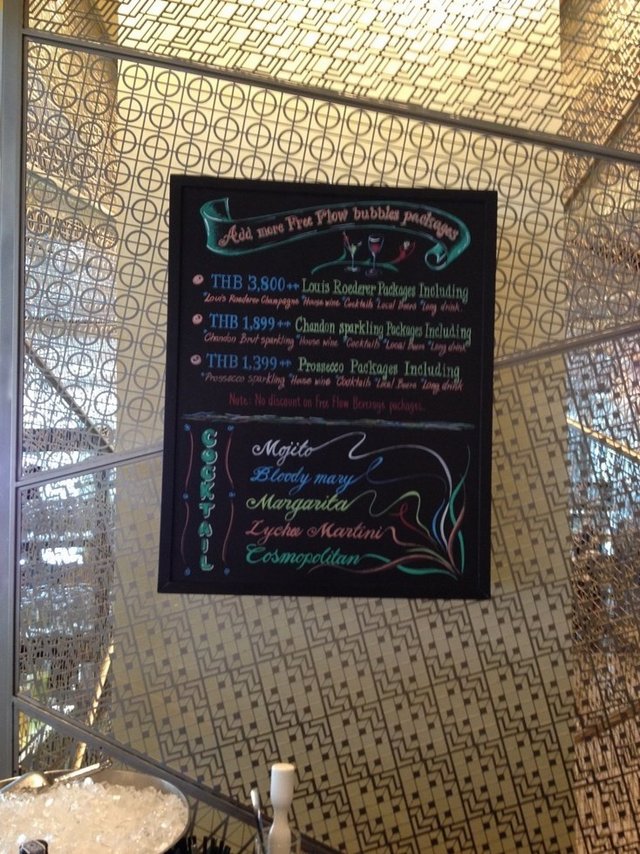 Add more Free Flow bubbles packages
THB 3,800++ Louis Roederer Packages Including
*Louis Roederer Champagne *House wine *Cocktails *Local Beers *Long drink
THB 1,899++ Chandon sparkling Packages Including
*Chandon Brut sparkling *House wine *Cocktails *Local Beers *Long drink
THB 1,399++ Prossecco Packages Including
*Prossecco sparkling *House wine *Cocktails *Local Beers *Long drink
Note: No discount on Free Flow Beverage packages.
COCKTAIL
Mojito
Bloody mary
Margarita
Lychee Martini
Cosmopolitan